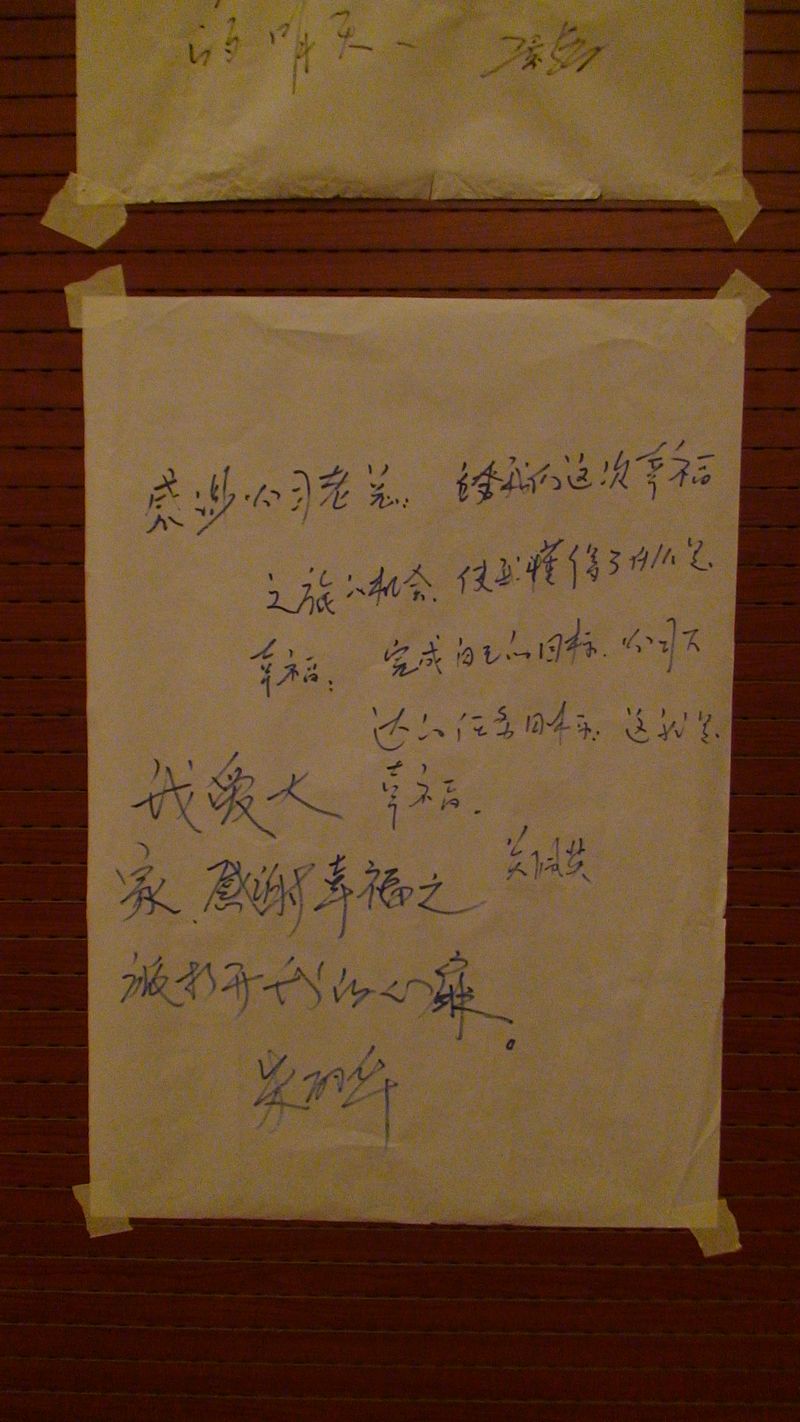 的明天
感谢公司老总: 给我们这次幸福
之旅的机会, 使我懂得了什么是
幸福: 完成自己的目标, 公司下
达的任务目标, 这就是
幸福.
我爱大
家, 感谢幸福之
旅打开我的心扉。